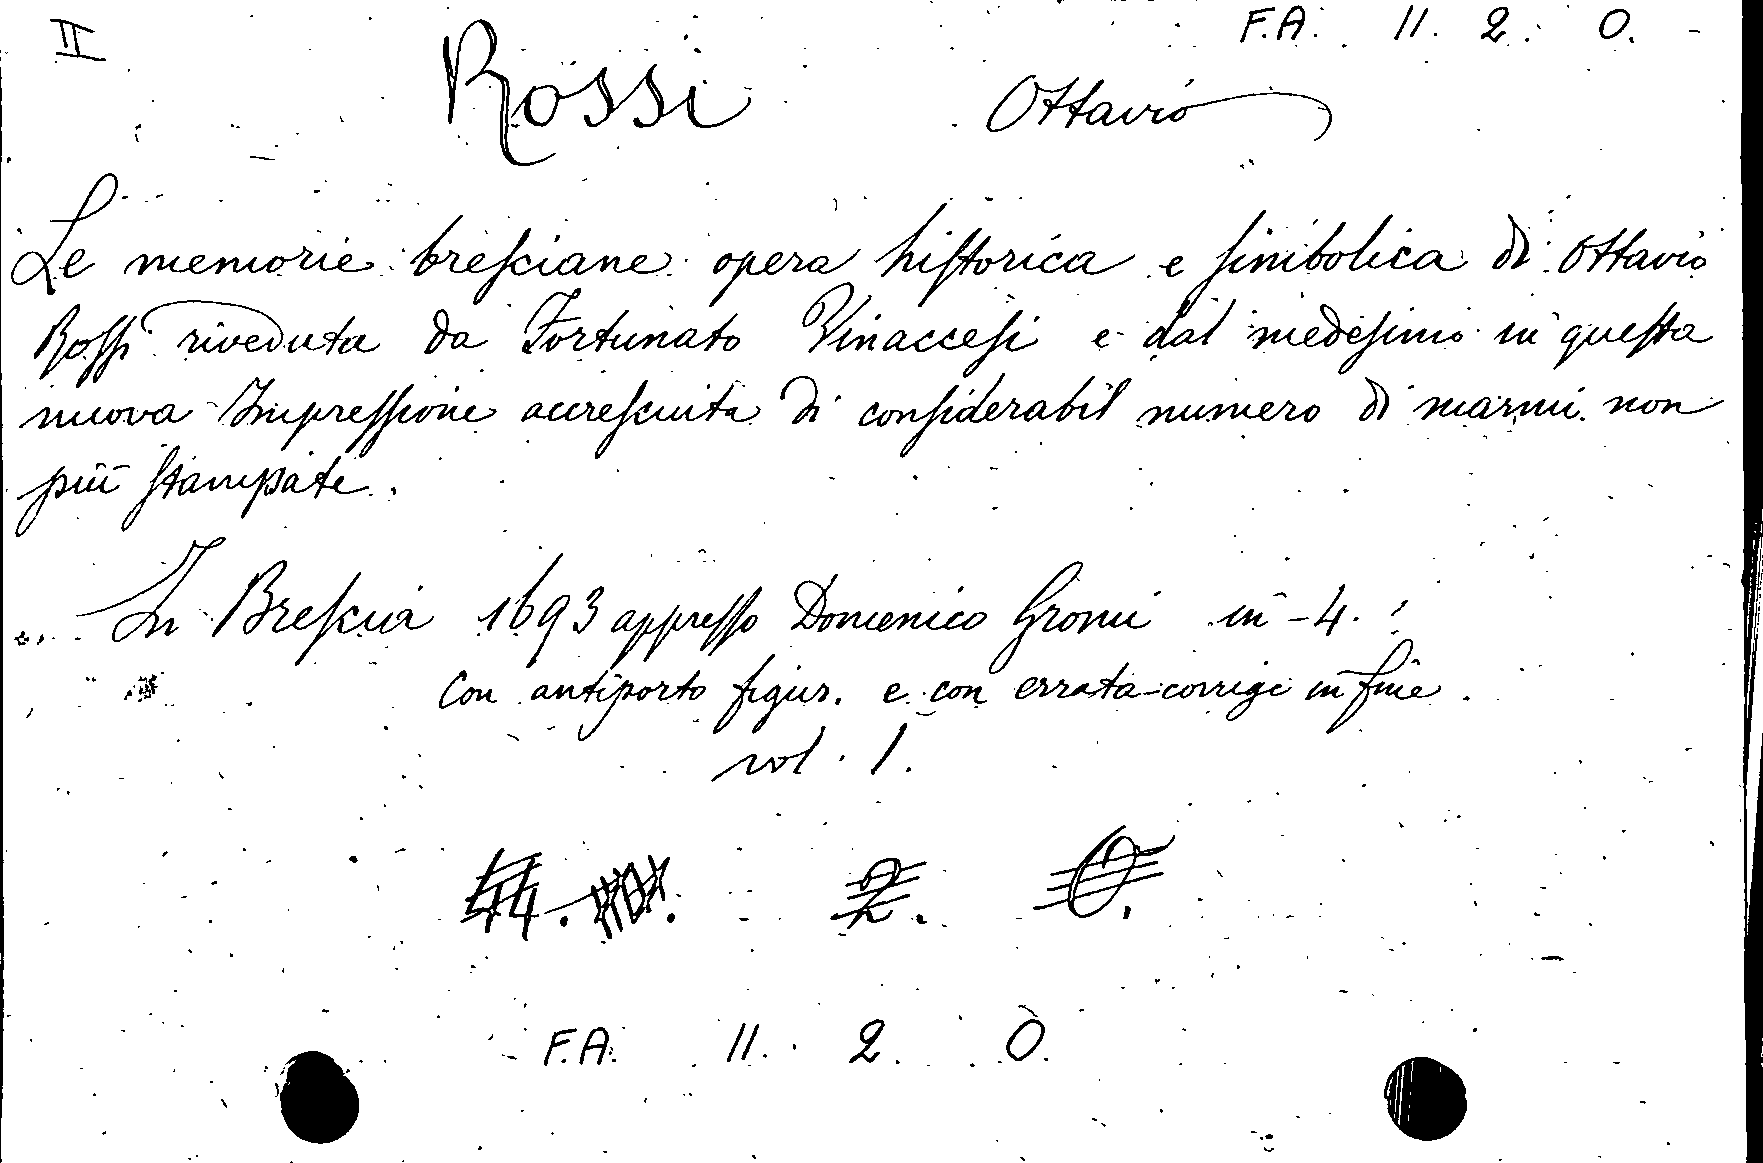 II F.A. 11. 2. O.
Rossi Ottavio
Le memorie bresciane opera historica e simbolica di Ottavio
Rossi riveduta da Fortunato Vinaccesi e dal medesimo in questa
nuova Impressione accresciuta di considerabil numero di marmi non
più stampate.
In Brescia 1693 appresso Domenico Gromi in-4.
Con antiporto figur. e con errata-corrige in fine.
vol. 1.
44. 2. O.
F.A. 11. 2. O.